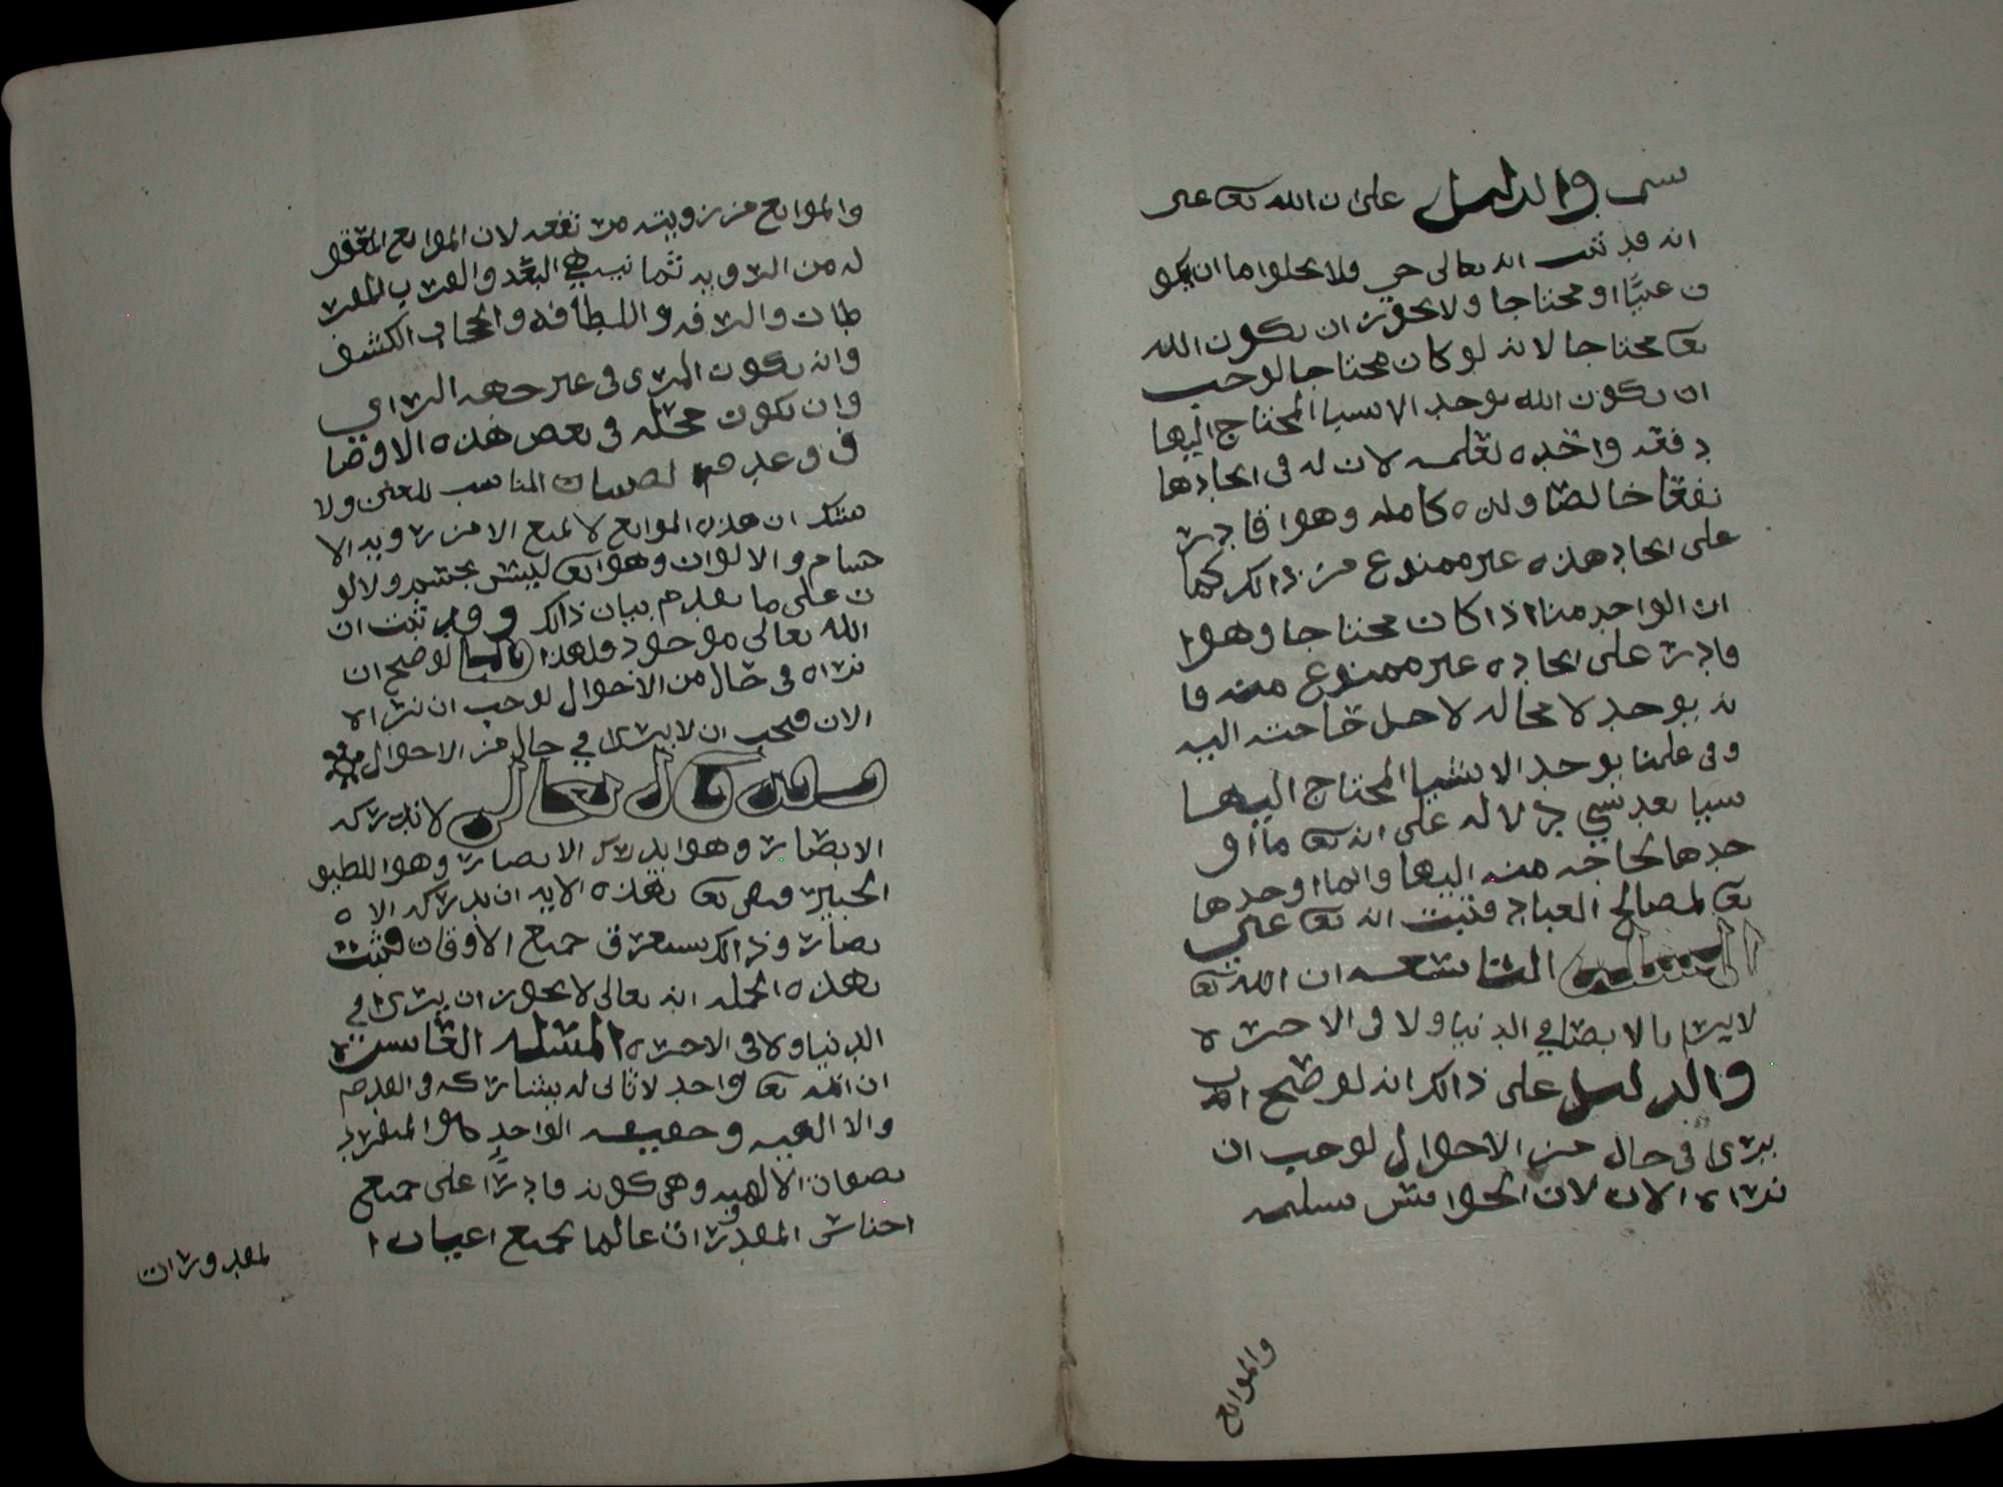 شي والدليل على ان الله تعا غني
انه قد ثبت انه تعالى حي ولا يخلوا ما ان يكو
ن غنيًّا او محتاجا ولا يجوز ان يكون الله
تعا محتاجا لانه لو كان محتاجا لوجب
ان يكون الله يوجد الاشيا المحتاج اليها
دفعه واحده لعلمه لان له في ايجادها
نفعًا خالصًا ولذه كامله وهوا قادر
على ايجاد هذه غير ممنوع من ذالك كما
ان الواحد منا اذا كان محتاجا وهوا
قادر على ايجاده غير ممنوع منه فا
نه يوجد لا محاله لاجل حاجته اليه
وفي علمنا بوجد الاشيا المحتاج اليها
شيا بعد شي دلاله على انه تعا ما او
جدها لحاجه منه اليها وانما اوجدها
تعا لمصالح العباد فثبت انه تعا غني
المسئله التاسعه ان الله تعا
لا يرى بالابصار في الدنيا ولا في الاخره
والدليل على ذالك انه لو صح ان
يرى في حال من الاحوال لوجب ان
نراه الان لان الحواس سليمه
والموانع
والموانع من رويته مرتفعه لان الموانع المعقو
له من الرويه ثمانيه هي البعد والقرب المفر
طان والرقه واللطافه والحجاب الكثيف
وان يكون المرى في غير جهه الراى
وان يكون محله في بعض هذه الاوصا
ف وعدم الضيا المناسب للعين ولا
شك ان هذه الموانع لا تمنع الا من رويه الا
جسام والالوان وهوا تعا ليس بجسم ولا لو
ن على ما تقدم بيان ذالك وقد ثبت ان
الله تعالى موجود فلهذا قلنا لو صح ان
نراه في حال من الاحوال لوجب ان نراه
الان فيجب ان لا يرى في حال من الاحوال
وقد قال تعالى لا تدركه
الابصار وهوا يدرك الابصار وهوا اللطيف
الخبير فنفى تعا بهذه الايه ان يدركه الا
بصار وذالك يستغرق جميع الاوقات فثبت
بهذه الجمله انه تعالى لا يجوز ان يرى في
الدنيا ولا في الاخره المسئله العاشره
ان الله تعا واحد لا ثاني له يشاركه في القدم
والا الهيه وحقيقه الواحد هوا المنفرد
بصفات الالهيه وهي كونه قادرًا على جميع
اجناس المقدورات عالما بجميع اعيان ا
لمقدورات